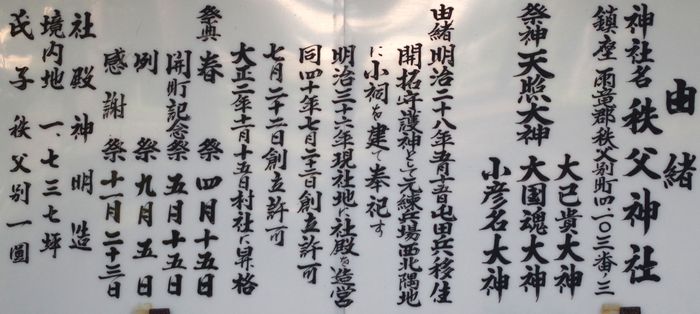 由緒
神社名 秩父神社
鎮座 雨竜郡秩父別町四一〇三番ノ三
祭神 天照大神
大己貴大神
大国魂大神
小彦名大神
由緒 明治二十八年五月十五日屯田兵移住
開拓守護神として元練兵場西北隅地
に小祠を建て奉祀す
明治三十六年現社地に社殿を造営
同四十年七月二十二日創立許可
七月二十二日創立許可
大正二年十二月十五日村社に昇格
祭典 春祭 四月十五日
開町記念祭 五月十五日
例祭 九月五日
感謝祭 十一月二十三日
社殿 神明造
境内地 一、七三七坪
氏子 秩父別一圓